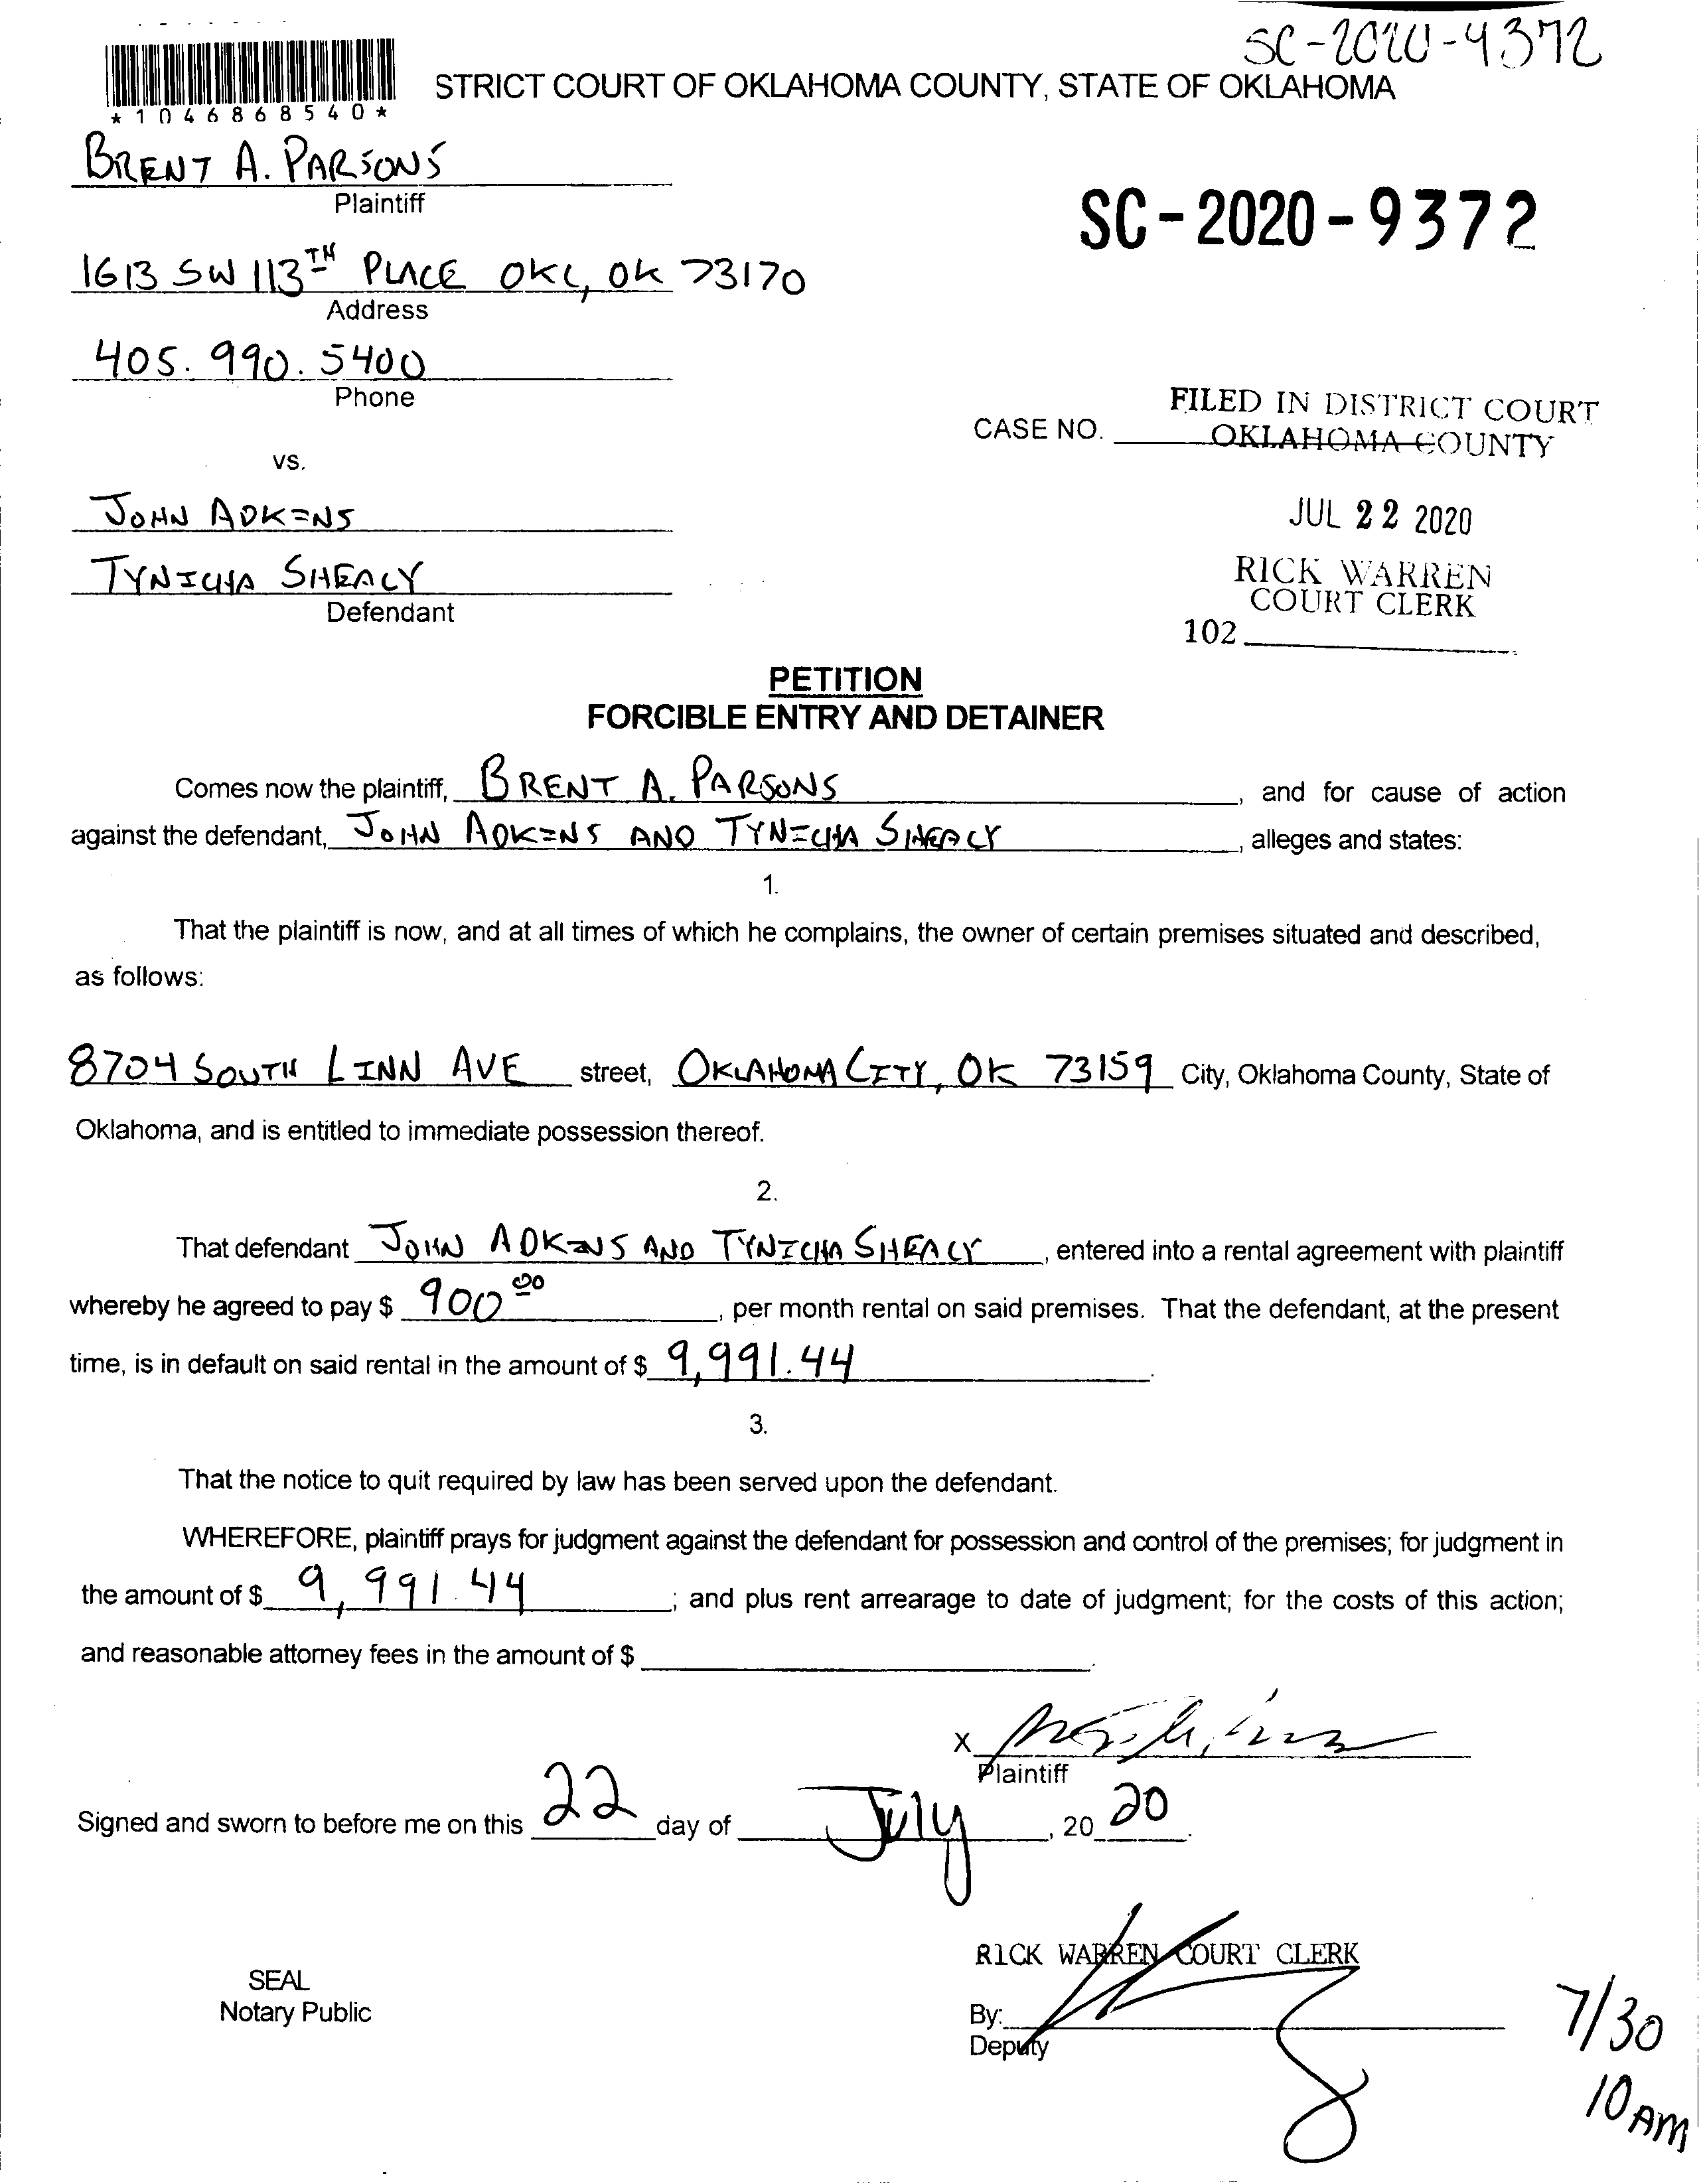 SC-2020-9372
*1046868540*
STRICT COURT OF OKLAHOMA COUNTY, STATE OF OKLAHOMA
BRENT A. PARSONS
Plaintiff
SC-2020-9372
1613 SW 113TH PLACE OKC, OK 73170
Address
405.990.5400
Phone
FILED IN DISTRICT COURT
CASE NO. OKLAHOMA COUNTY
vs.
JOHN ADKINS
JUL 22 2020
TYNICHA SHEALY
Defendant
RICK WARREN
COURT CLERK
102
PETITION
FORCIBLE ENTRY AND DETAINER
Comes now the plaintiff, BRENT A. PARSONS, and for cause of action
against the defendant, JOHN ADKINS AND TYNICHA SHEALY, alleges and states:
1.
That the plaintiff is now, and at all times of which he complains, the owner of certain premises situated and described,
as follows:
8704 SOUTH LINN AVE street, OKLAHOMA CITY, OK 73159 City, Oklahoma County, State of
Oklahoma, and is entitled to immediate possession thereof.
2.
That defendant JOHN ADKINS AND TYNICHA SHEALY, entered into a rental agreement with plaintiff
whereby he agreed to pay $ 900.00, per month rental on said premises. That the defendant, at the present
time, is in default on said rental in the amount of $ 9,991.44.
3.
That the notice to quit required by law has been served upon the defendant.
WHEREFORE, plaintiff prays for judgment against the defendant for possession and control of the premises; for judgment in
the amount of $ 9,991.44; and plus rent arrearage to date of judgment; for the costs of this action;
and reasonable attorney fees in the amount of $ .
X
Plaintiff
Signed and sworn to before me on this 22 day of July, 2020.
RICK WARREN COURT CLERK
SEAL
Notary Public
By:
Deputy
7/30
10 AM